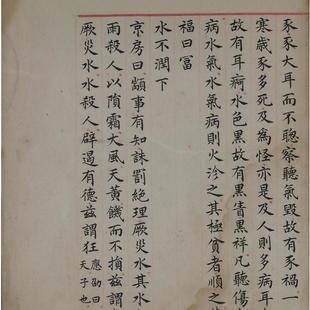 豕豕大耳而不聰察聽氣毀故有豕禍一
寒歲豕多死及為怪亦是及人則多病耳
故有耳痾水色黑故有黑眚黑祥凡聽傷
病水氣水氣病則火沴之其極貧者順之其
福曰富
水不潤下
京房曰顓事有知誅罰絕理厥災水其水
雨殺人以隕霜大風天黃饑而不損茲謂
厥災水水殺人辟遏有德茲謂狂
應劭曰
天子也